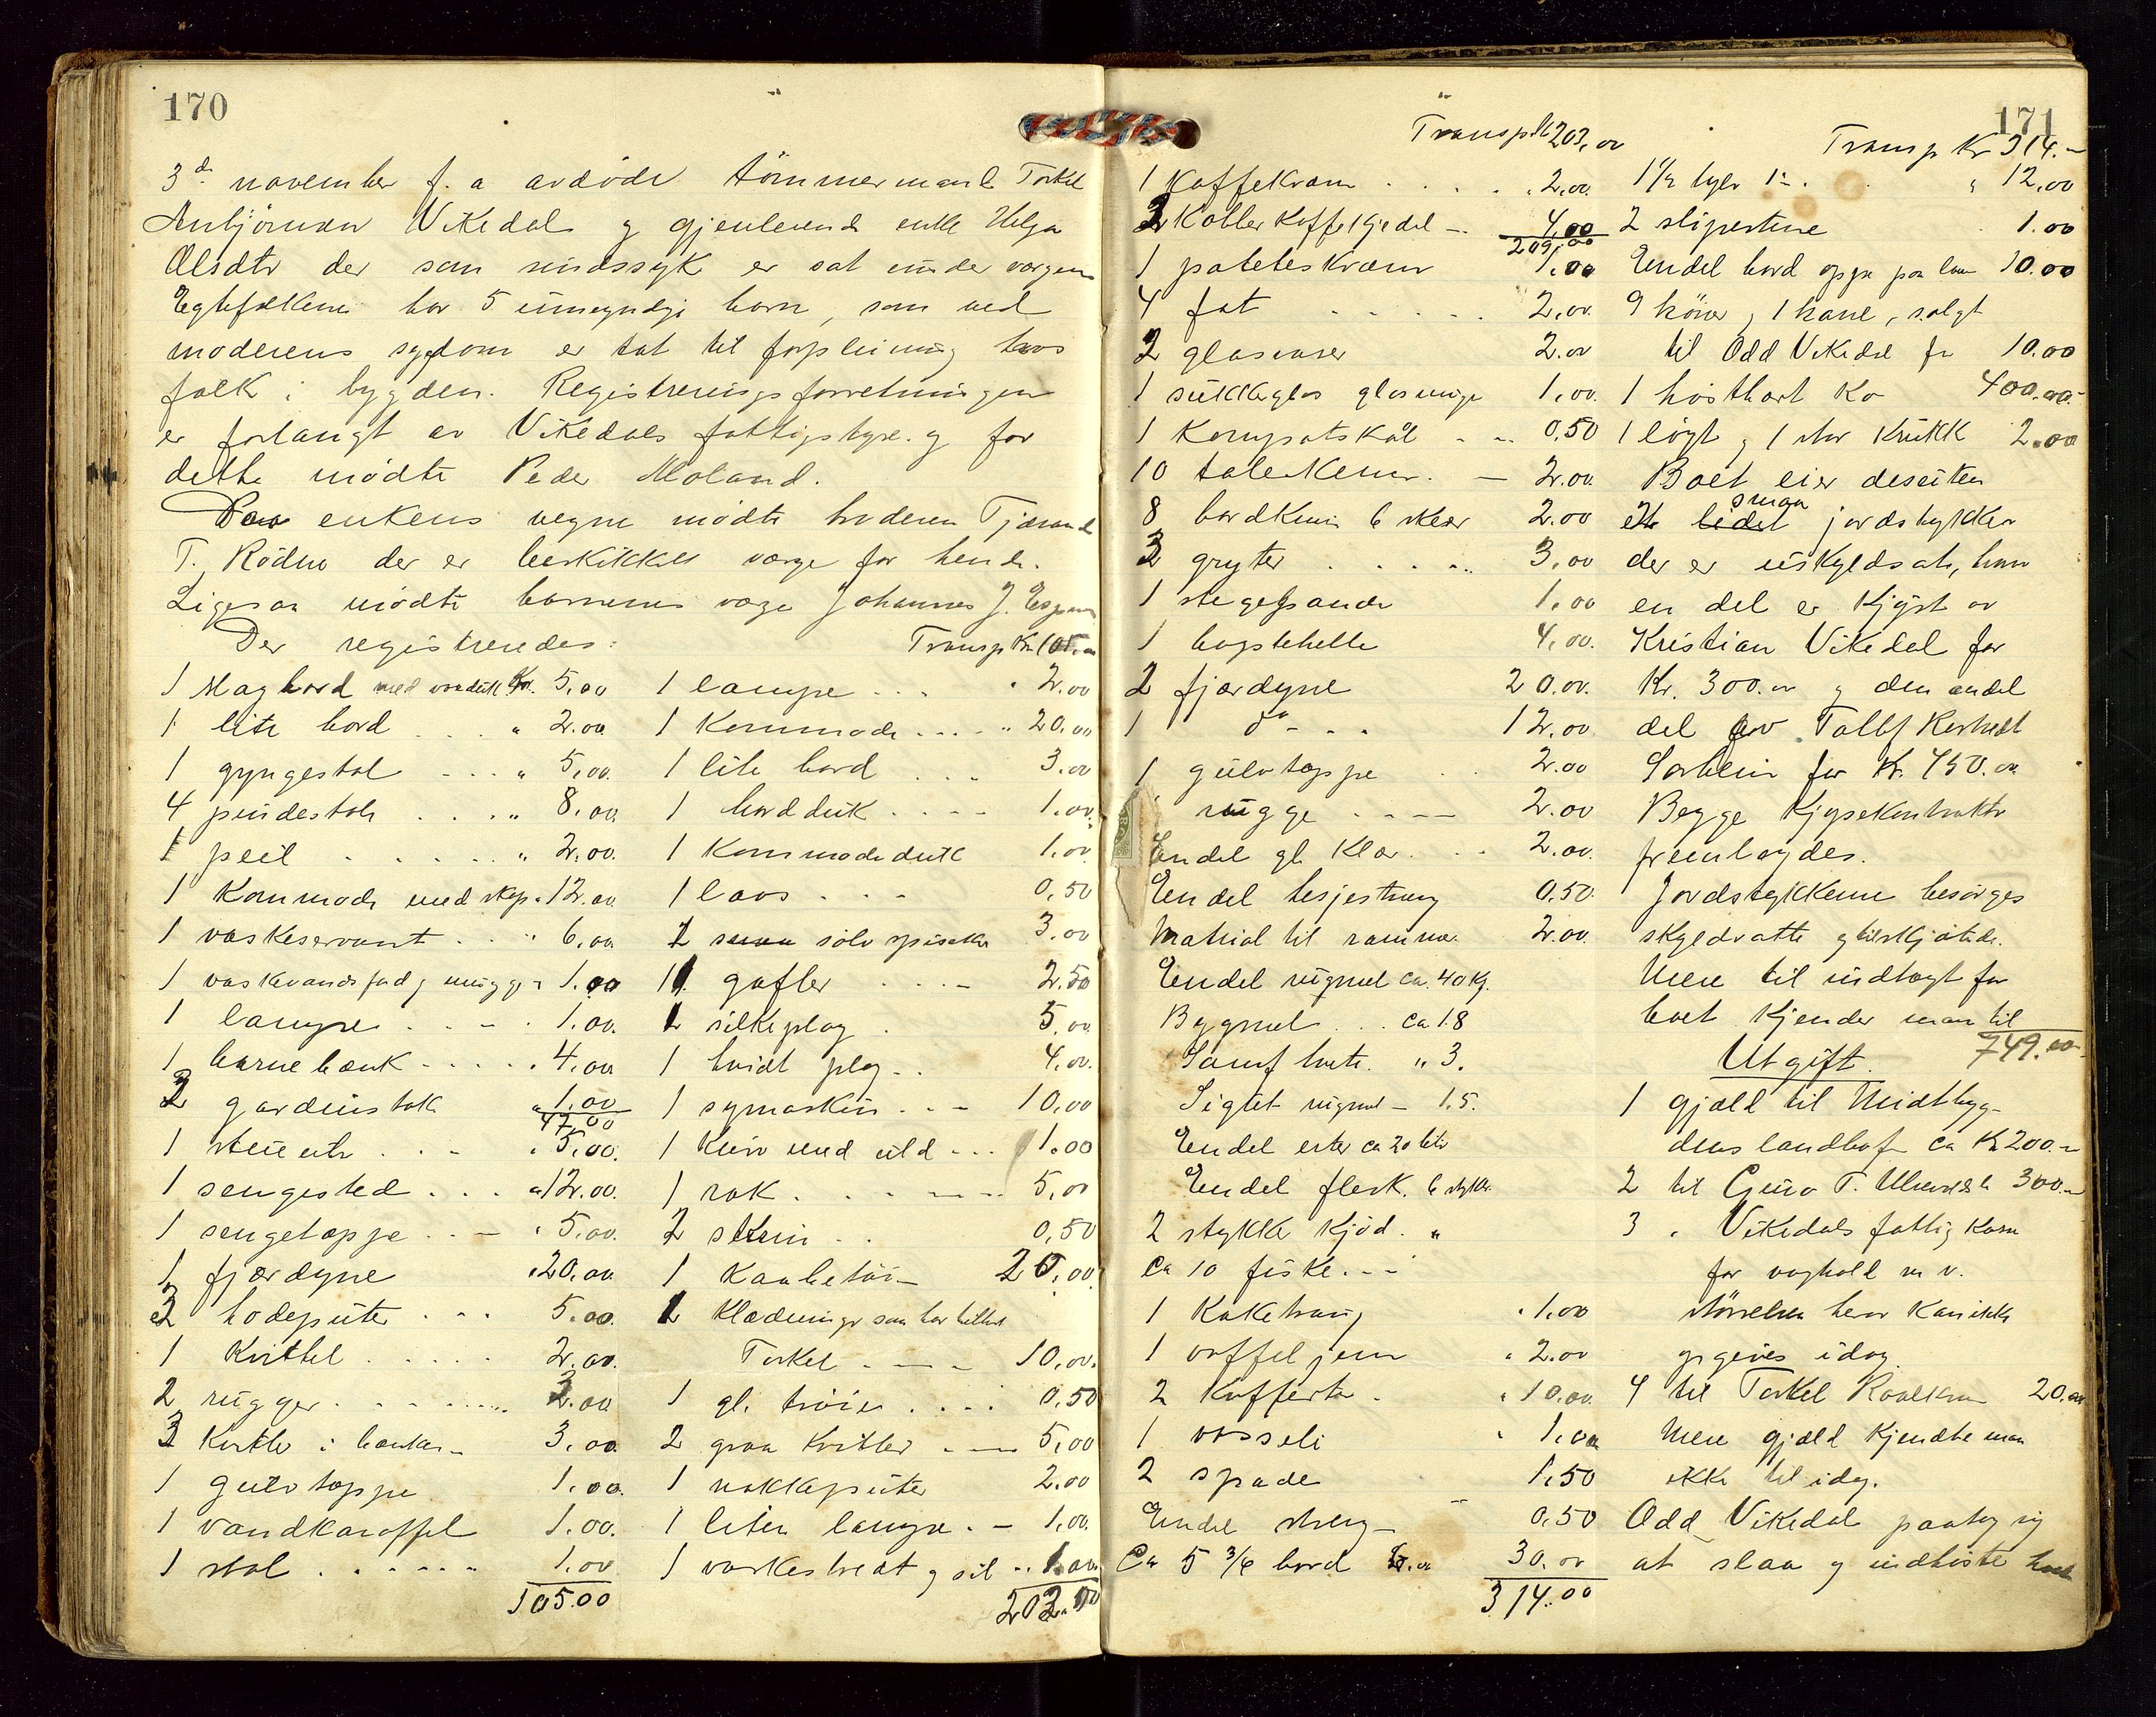 170
3d november f. a avdöde tömmermand Torkel
Vikedal og gjenlevende enke Helga
Olsdtr der som sindssyk er sat under vorgem
Egtefolkene har 5 umyndige barn, som ved
moderens sygdom er sat til forpleining hos
folk i bygden. Registreringsforretningen
er forlangt av Vikedals fattigstyre og for
dette mödte Peder Moland.
Paa enkens vegne mödte broderen Tjærand
T. Rödne der er beskikket verge for hende.
Ligesaa mödte barnenes verge Johannes J.
Der registreredes: Transp Kr 105.00
1 Slagbord med voxduk Kr. 5,00
1 lite bord . . . " 2.00
1 gyngestol - . . " 5,00.
4 pindestole . . . " 8,00.
1 peil . . . . . " 2,00.
1 Kommode med skap " 12.00
1 vaskeservant . . " 6,00
1 vaskevandsfad og mugge " 1.00
1 lampe . . . - . 1,00.
1 barnebænk - . . . . 4,00
2 gardinstok " 1,00
47,00
1 stueuhr . . - " 5,00.
1 sengested . . . " 12.00.
1 sengetæppe . . - " 5,00.
1 fjærdyne " 20,00
2 hodeputer . . . 5.00.
1 Kvittel . . . . . 2,00.
2 rugger . . . . . 2.00
3 Kvitler i bænken - 3,00
1 gulvtæppe 1.00.
1 vandkaraffel 1.00.
1 stol . . . . . . 1.00
105.00
1 lampe . . . " 2.00
1 Kommode . . . . " 20,00
1 lite bord . . . 3.00
1 bordduk . . . . 1.00.
1 Kommodeduk 1,00
1 laas . . - 0,50
2 sölv spiseskr 3.00
11 gafler . . . - 2.50
1 silkeplag . 5.00
1 hvidt plag . . 4.00.
1 symaskin . . - 10,00
1 Kurv med uld . . . 1.00
1 rok . . . . . . 5,00
2 . . 0,50
1 20.00
1 Klædninger som har tilhört
Torkel . - - 10,00.
1 gl. tröie . . . . 0,50
2 graa Kvitler . - - 5,00
1 nakkeputer 2.00
1 liten lampe . - 1,00.
1 og sil . . 1.00
203.00
171
Transp Kr 203,00
1 Kaffekværn . . . . " 2,00.
2 Kobber Kaffekjedel - 4,00
209,00
1 poteteskværn 1,00
4 fat . . . . . 2,00.
2 glasvaser 2.00
1 sukkerglas glasmugge 1,00.
1 Kompotskål - . . 0,50
10 talerkener. - 2.00.
8 bordkniv 6 skeer 2.00
3 gryter . . . . . 3,00
1 stegepande 1.00
1 bagstehelle 4,00.
2 fjærdyne 20.00.
1 do - . . 12.00.
1 gulvtæppe . . 2.00
1 rugge . - - - 2.00
Endel gl. Klær . . . 2.00.
Endel hesjestreng 0.50.
Matrial til rammer. 2.00.
Endel rugmel ca. 40 kg.
Bygmel . . . ca 18
Samf hvete. " 3.
Sigtet rugmel - 15.
Endel erter ca 20 liter
Endel flesk. 6 stykker
2 stykke kjöd. "
Ca 10 fiske . - -
1 Kaketraug " 1.00
1 vaffeljern " 2.00
2 Kufferter . " 10,00.
1 " 1,00
2 spade 1,50
Endel streng - 0.50
Ca 5 3/6 bord 30.00
314.00
Transp Kr 314.-
1 1/2 tylv 1" . " 12,00
2 slipestene 1.00
Endel bord oppe paa laa 10.00
9 höner og 1 hane, solgt
til Odd Vikedal for 10.00
1 hostbær Ko 400.00.-
1 lögt og 1 stor Krukke 2.00
Boet eier desuten
smaa
jordstykker
der er uskyldsat, hvor
en del er Kjöpt av
Kristian Vikedal for
Kr. 300.00 og den andel
del av
for Kr. 450.00
Begge Kjöpekontrakter
fremlagdes.
Jordstykkene besörges
skyldsatte og tilskjötede.
Mere til indtægt for
boet Kjender man til
749.00
Utgift.
1 gjæld til Midtbyg-
dens landhandel ca Kr 200.-
2 til T. 300.-
3 " Vikedals fattigkasse
for voghold m v.
störrelsen herav Kan ikke
opgives idag.
4 til Torkel 20.00
Mere gjæld Kjendte man
ikke til idag.
Odd Vikedal paatog sig
at slaa og indhöste